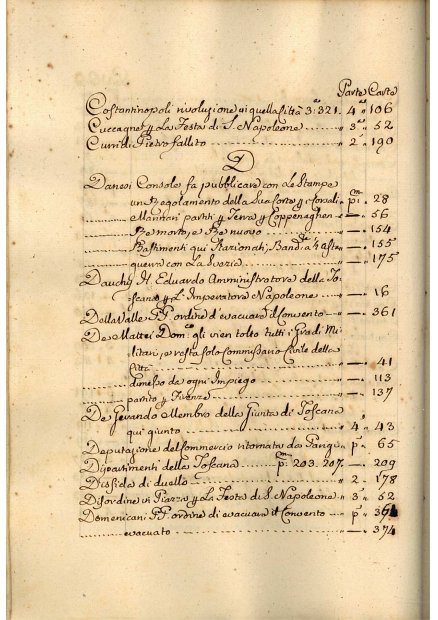 Parte Carte
Costantinopoli rivoluzione in quella Città 3.a 321. 4.a " 106
Cuccagne p la Festa di S. Napoleone 3.a " 52
Curri di Pietro fallito 2.a " 190
D
Danesi Console fa pubblicare con le Stampe
un Regolamento della Sua Corte p i Corsali p.ma " 28
Marinari partiti p Terra p Coppenaghen " 56
Re morto, e Re nuovo " 154
Bastimenti qui Stazionati, Band.a 4 " 155
guerra con la Svezia " 175
Dauchy H. Eduardo Amministratore della To-
scana p L'Imperatore Napoleone " 16
Della Valle PP. ordine d'evacuare il Convento " 361
De Mattei Dom.co gli vien tolto tutti i Gradi Mi-
litari, e resta solo Commissario Civile della
Città " 41
dimesso da ogni Impiego " 113
partito p Firenze " 137
De Gerando Membro della Giunta di Toscana
qui giunto 4 " 43
Deputazione del Commercio ritornata da Parigi p.a " 65
Dipartimenti della Toscana p.a 203. 207. " 209
Disfida di duello 2 " 178
Disordine in Piazza p la Festa di S. Napoleone 3 " 52
Domenicani PP. ordine di evacuare il Convento p.a " 361
evacuato " 374